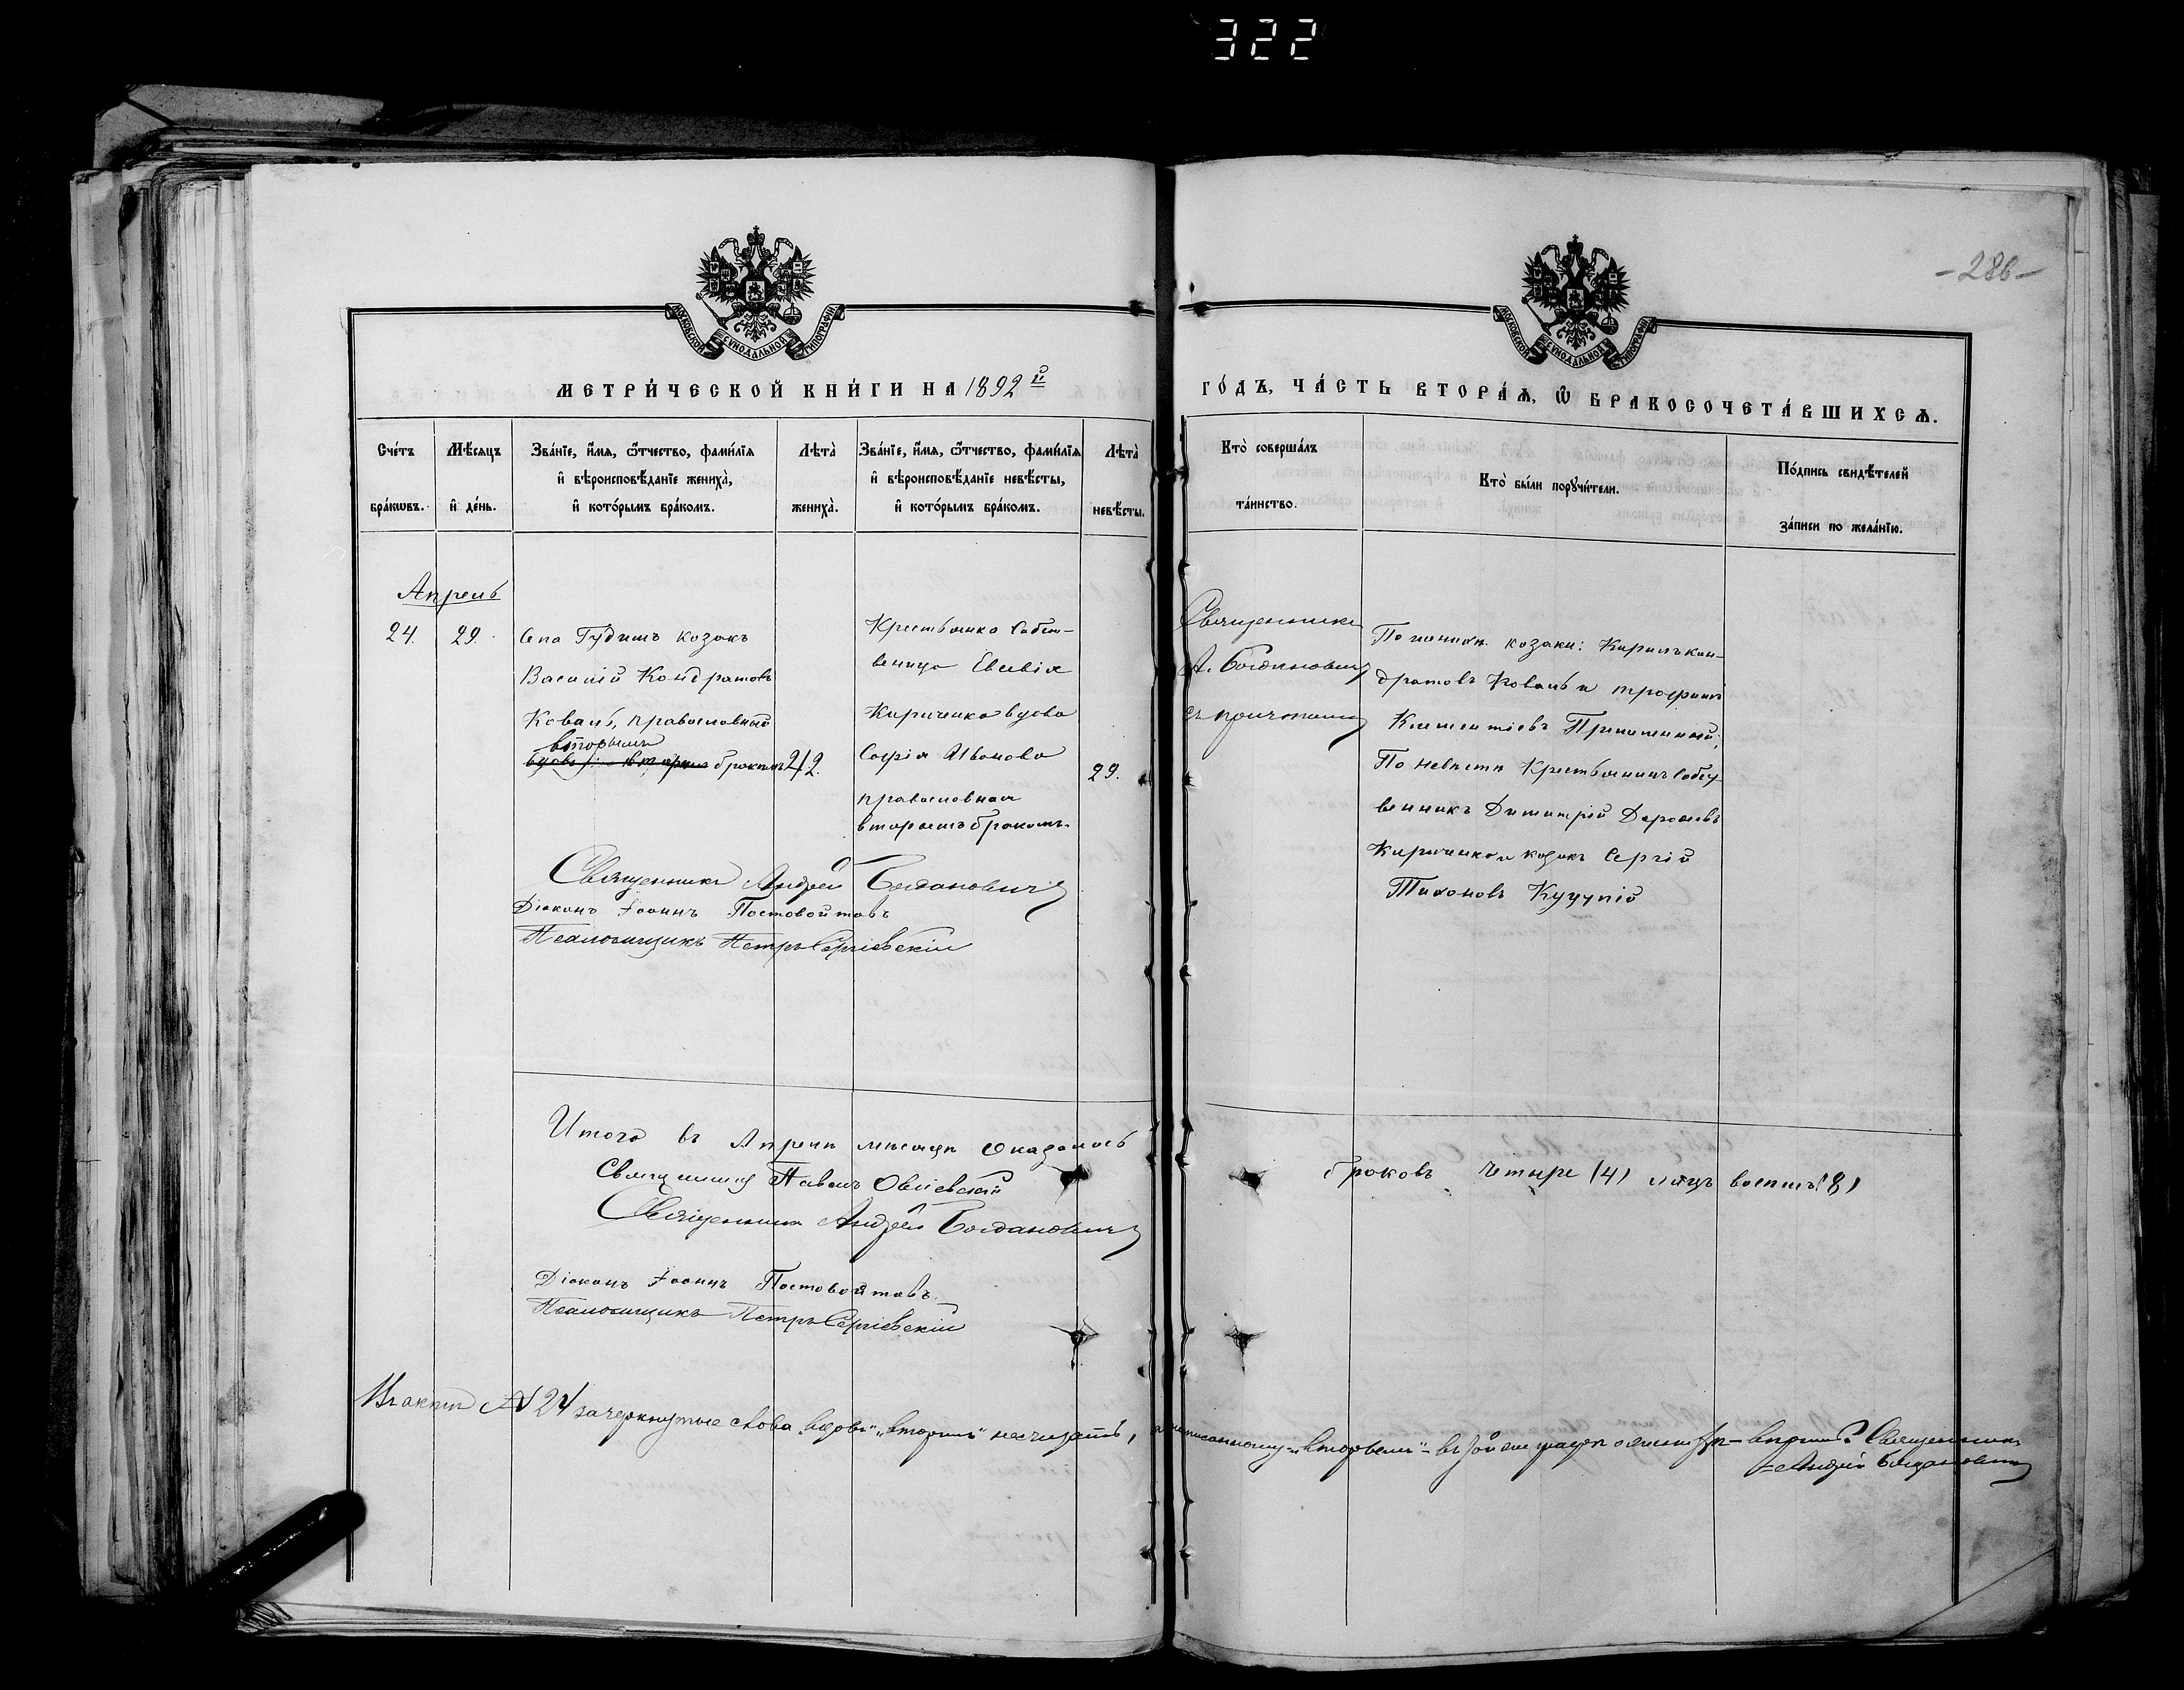 322
-286-
МОСКОВСКОЙ СѴНОДАЛЬНОЙ ТИПОГРАФІИ
МОСКОВСКОЙ СѴНОДАЛЬНОЙ ТИПОГРАФІИ
МЕТРИ́ЧЕСКОЙ КНИ́ГИ НА 1892й
ГО́ДЪ, ЧА́СТЬ ВТОРА́Ѧ, Ѡ҆ БРАКОСОЧЕТА́ВШИХСѦ.
Сче́тъ бра́кѡвъ.
Мѣ́сяцъ и҆ де́нь.
Зва́нїе, и҆́мя, ѻ҆́тчество, фами́лїя
и҆ вѣроисповѣ́данїе жениха̀,
и҆ кото́рымъ бра́комъ.
Лѣта̀ жениха̀.
Зва́нїе, и҆́мя, ѻ҆́тчество, фами́лїя
и҆ вѣроисповѣ́данїе невѣ́сты,
и҆ кото́рымъ бра́комъ.
Лѣта̀ невѣ́сты.
Кто̀ соверша́лъ
та́инство.
Кто̀ бы́ли порꙋчи́тели.
По́дпись свидѣ́телей
за́писи по жела́нїю.
Апрель
24. 29.
Села Гудимъ козакъ
Василій Кондратовъ
Коваль, православный
вторымъ
вдовъ вторымъ бракомъ
42.
Крестьянка Собст-
веница Евсевія
Кириченка вдова
Софія Иванова
православная
вторымъ бракомъ.
29.
Священникъ
А. Богдановичъ
съ причтомъ
По женихѣ козаки: Кирилъ Кон-
дратовъ Коваль и Трофимъ
Климентіевъ
По невѣсте Крестьянинъ Собст
венникъ Димитрій
Кириченко и козакъ Сергій
Тихоновъ Куцупій
Священникъ Андрей Богдановичъ
Діаконъ Іоаннъ Постовойтовъ
Псаломщикъ Петръ Сергіевскій
Итого въ Апрелѣ месяце оказалось
браковъ четыре (4) лицъ восемь (8)
Священникъ Павелъ
Священникъ Андрей Богдановичъ
Діаконъ Іоаннъ Постовойтовъ.
Псаломщикъ Петръ Сергіевскій
Въ актѣ № 24 зачеркнутые слова „вдовъ" „вторымъ" не читать, а надписанному „вторымъ" - въ той же графѣ о женихѣ - верить. Священникъ
Андрей Богдановичъ